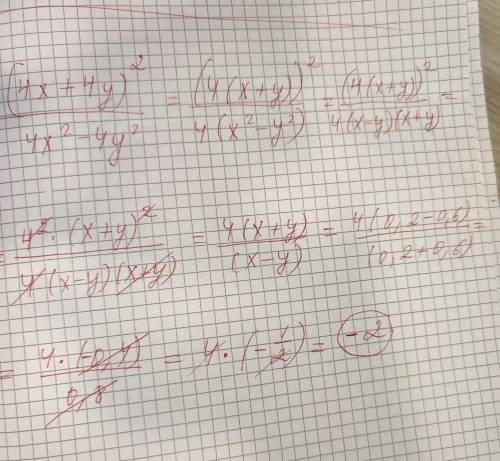 (4x+4y)² / 4x²-4y² = (4(x+y))² / 4(x²-y²) = (4(x+y))² / 4(x-y)(x+y) =
= 4²·(x+y)² / 4(x-y)(x+y) = 4(x+y) / (x-y) = 4(0,2-0,6) / (0,2+0,6) =
= 4·(-0,4) / 0,8 = 4·(-1/2) = -2